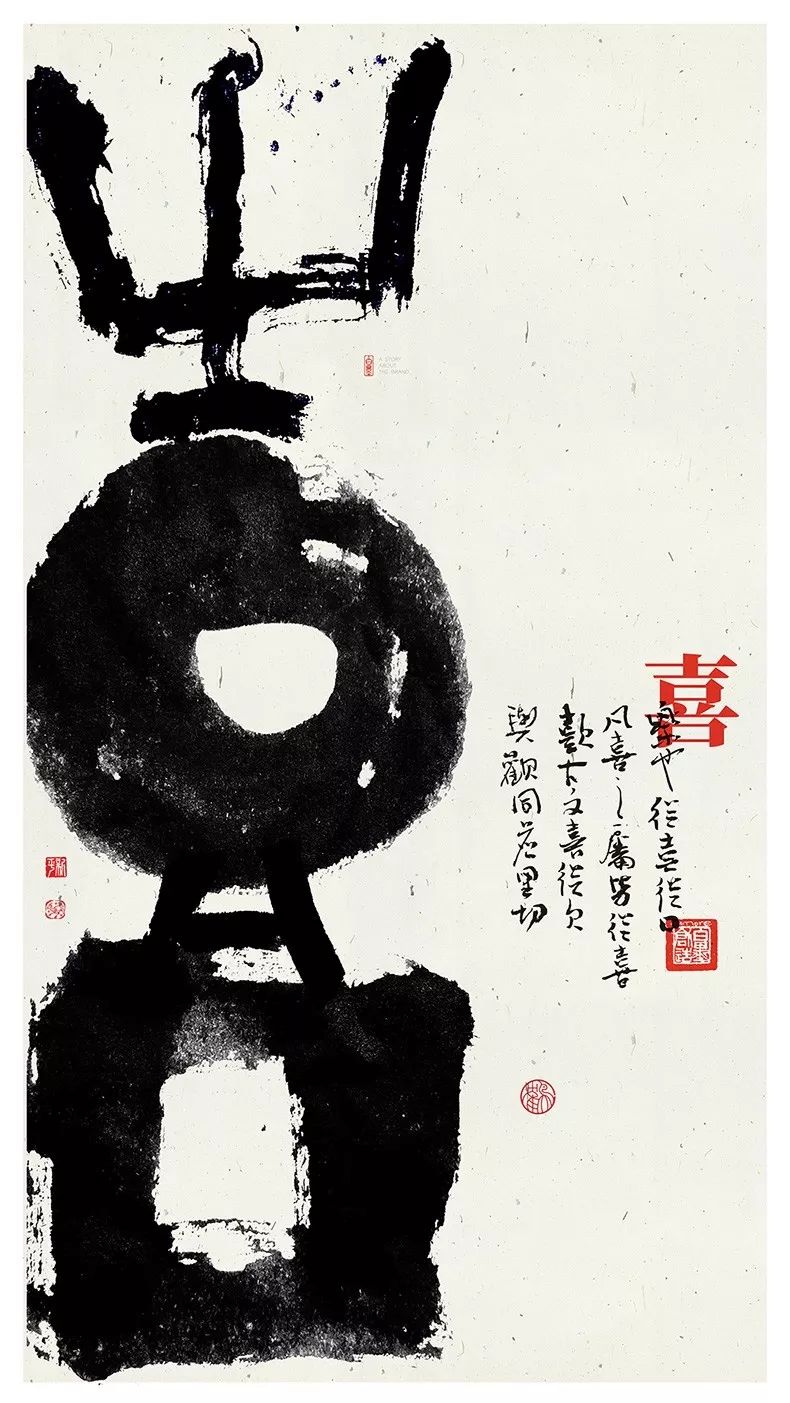 喜
A STORY
ABOUT
THE BRAND
喜
樂也從壴從口
凡喜之屬皆從喜
歖古文喜從欠
與歡同虛里切